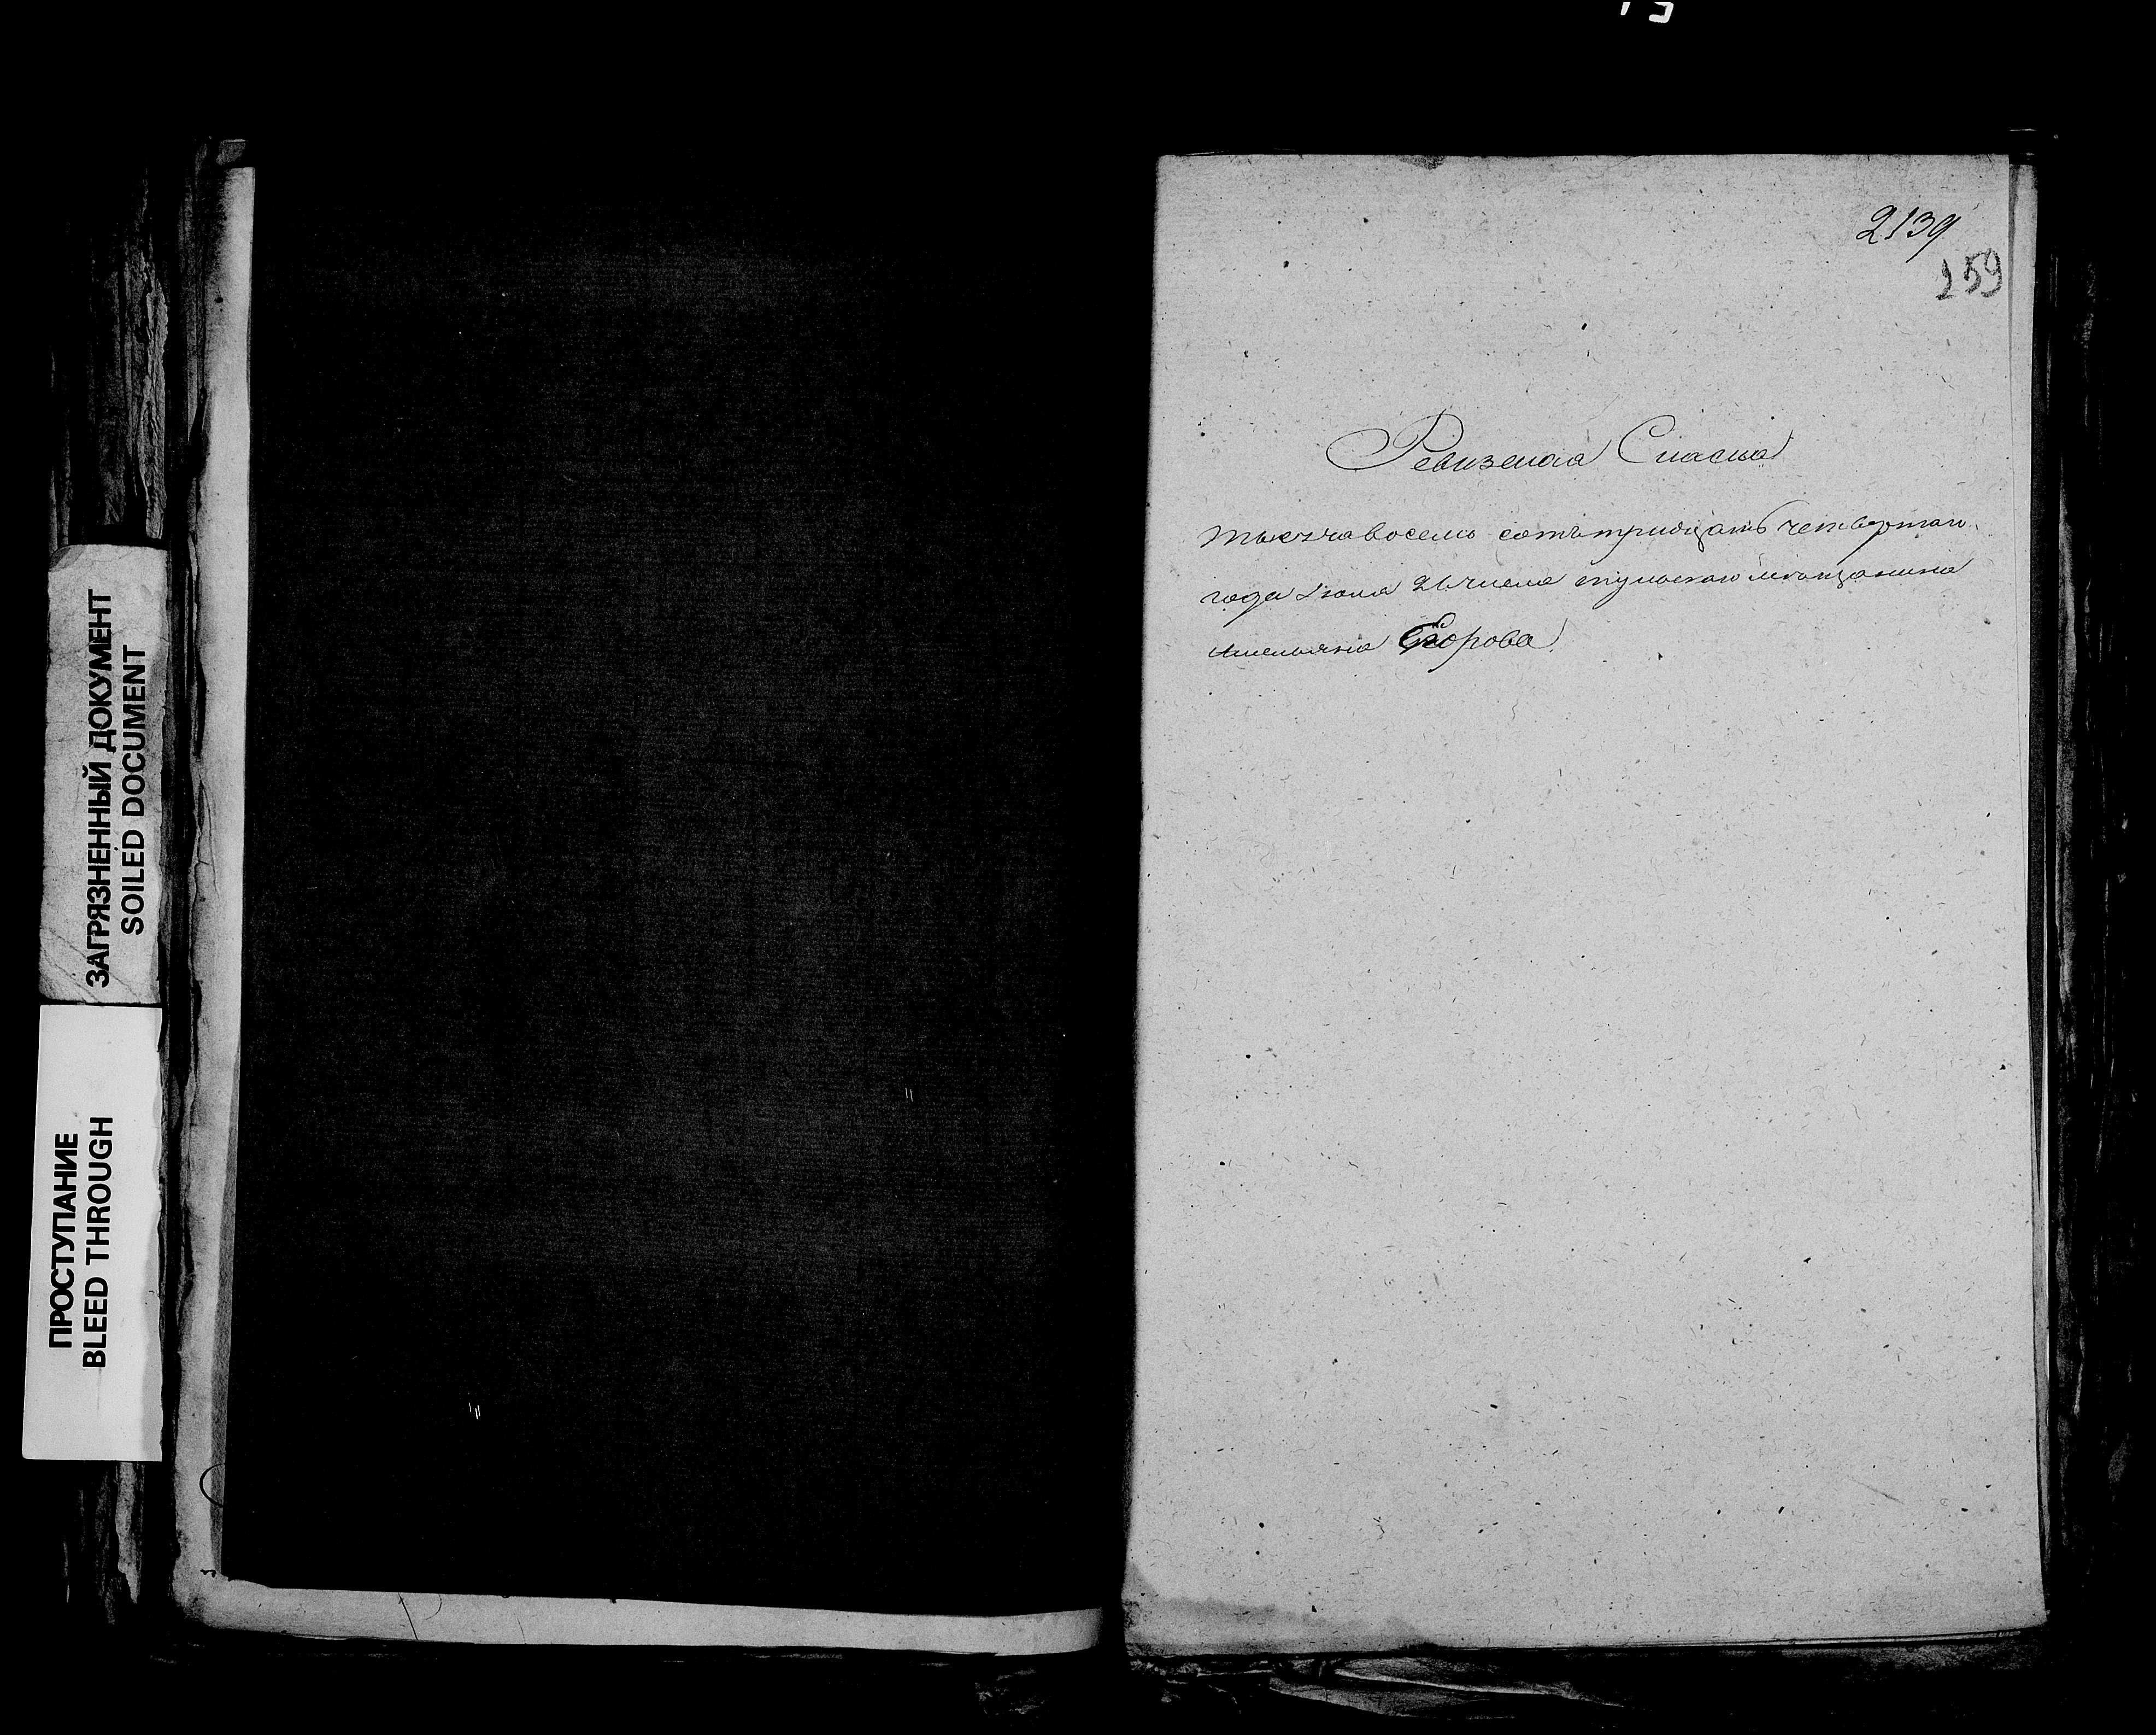 ЗАГРЯЗНЕННЫЙ ДОКУМЕНТ
SOILED DOCUMENT
ПРОСТУПАНИЕ
BLEED THROUGH
2139
159
Ревизская Скаска
тысяча восемь сотъ тридцать четвертаго
года Июля 21 числа тульскаго мещанина
Амельяна Егорова